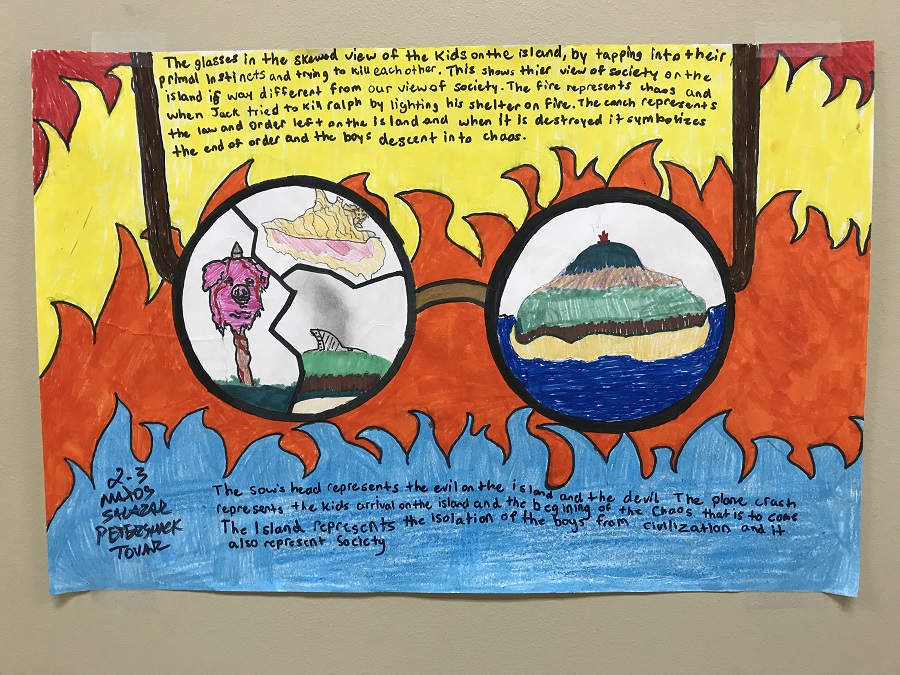 The glasses in the skewed view of the kids on the island, by tapping into their
primal instincts and trying to kill each other. This shows thier view of society on the
island if way different from our view of society. The fire represents chaos and
when Jack tried to kill ralph by lighting his shelter on fire. The conch represents
the law and order left on the island and when it is destroyed it symbolizes
the end of order and the boys descent into chaos.
The sow's head represents the evil on the island and the devil. The plane crash
represents the kids arrival on the island and the begining of the Chaos that is to come
The Island represents the isolation of the boys from civilization and it
also represent Society
2-3
MATOS
SALAZAR
PETERSHACK
TOVAR